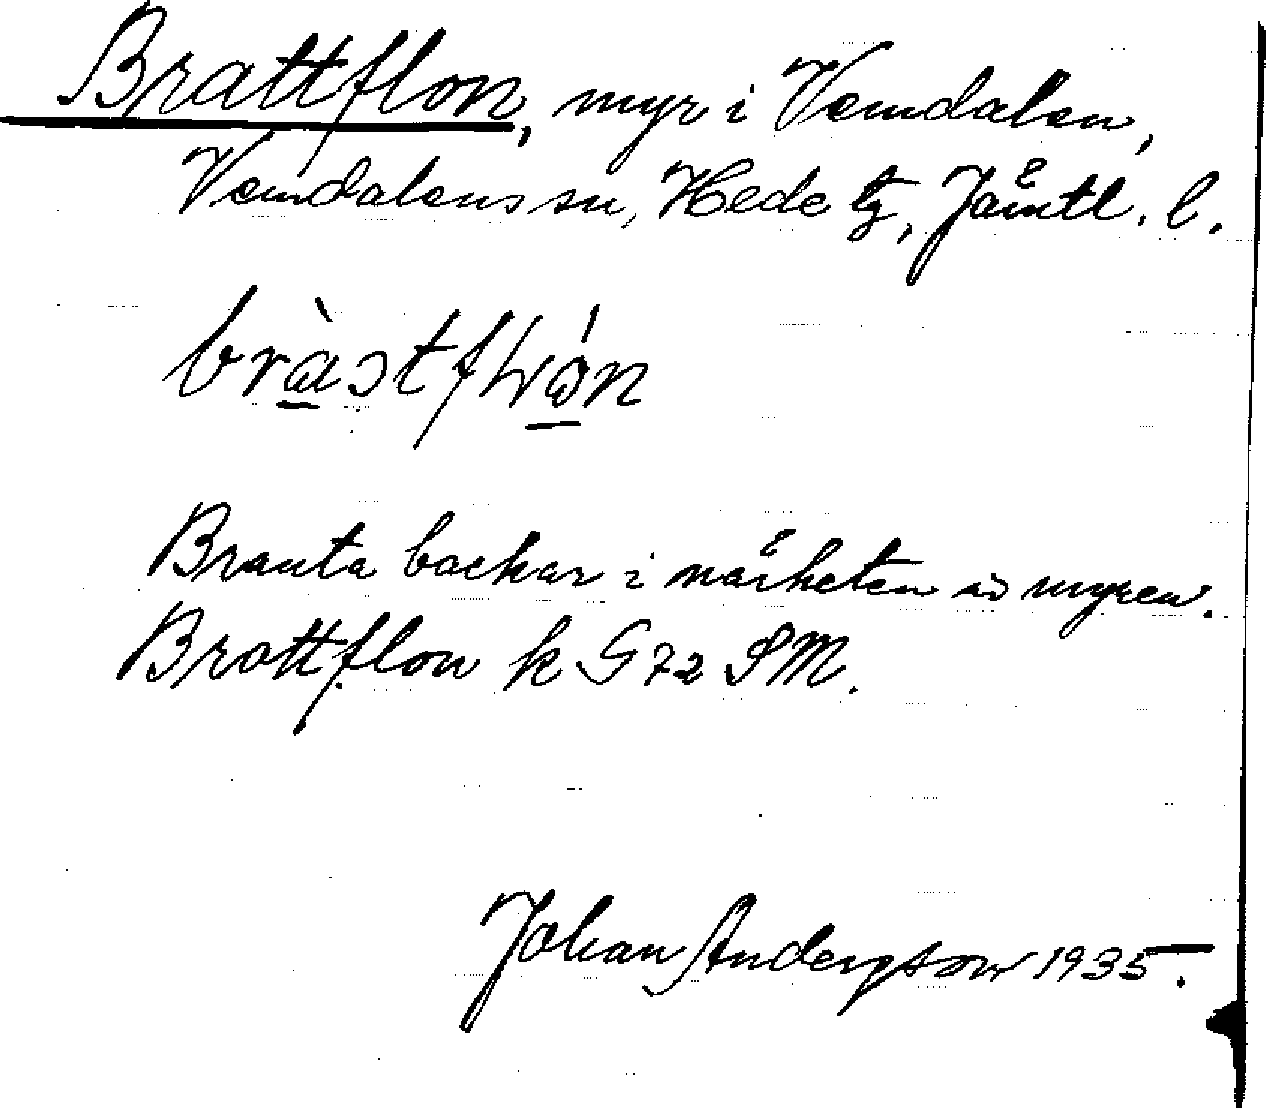 Brattflon, myr i Vemdalen,
Vemdalens sn, Hede tg, Jämtl. l.
Branta backar i närheten av myren.
Brattflon k G 72 SM.
Johan Andersson 1935.